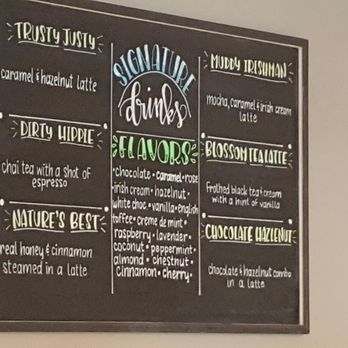 TRUSTY JUSTY
caramel & hazelnut latte
DIRTY HIPPIE
chai tea with a shot of
espresso
NATURE'S BEST
real honey & cinnamon
steamed in a latte
SIGNATURE
drinks
FLAVORS
•chocolate • caramel • rose
irish cream • hazelnut •
white choc. • vanilla • english
toffee • creme de mint •
raspberry • lavender •
coconut • peppermint •
almond • chestnut •
cinnamon • cherry •
MUDDY IRISHMAN
mocha, caramel & irish cream
latte
BLOSSOM TEA LATTE
Frothed black tea & cream
with a hint of vanilla
CHOCOLATE HAZLENUT
chocolate & hazelnut combo
in a latte